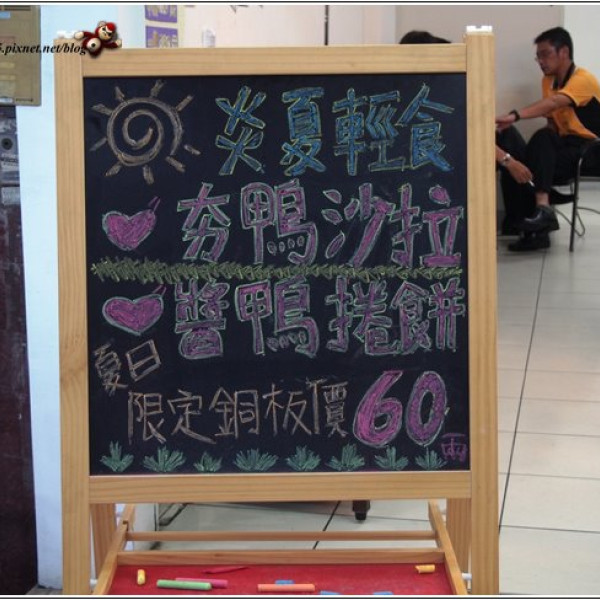 5.pixnet.net/blog
炎夏輕食
夯鴨沙拉
醬鴨捲餅
夏日
限定銅板價60